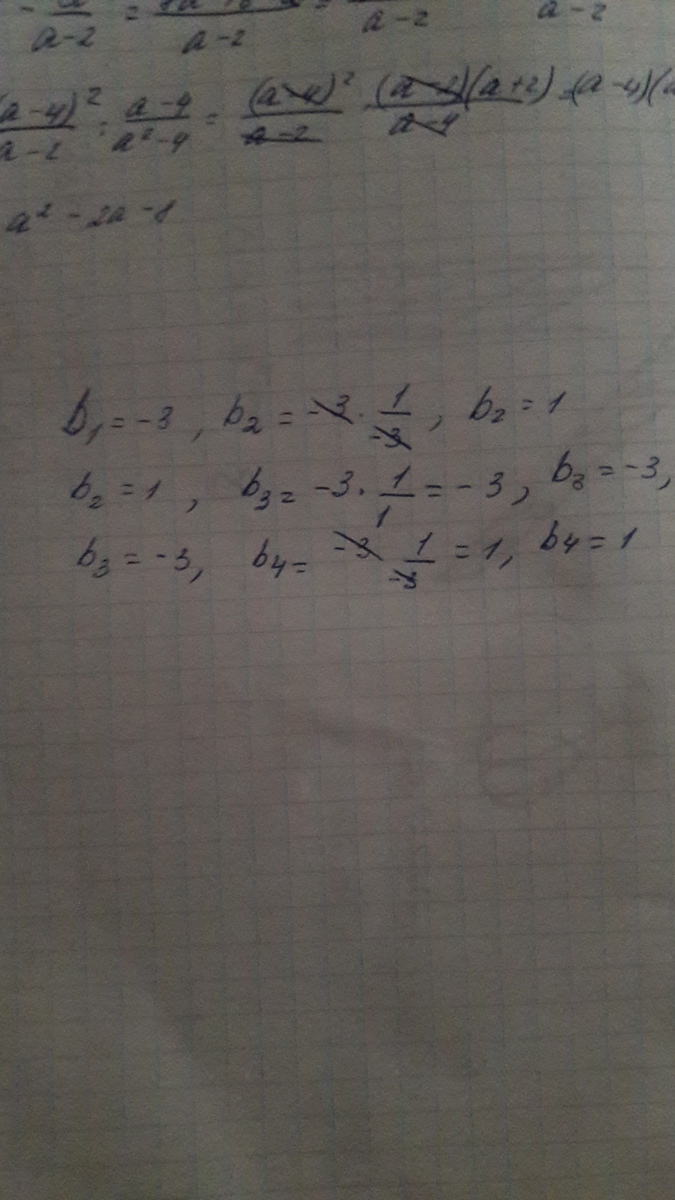 a-2 = a-2 a-2 a-2
(a-4)² / a-2 : a-4 / a²-4 = (a-4)² / a-2 · (a-2)(a+2) / a-4 = (a-4)(a
a² - 2a - 8
b₁ = -3 , b₂ = -3 · 1/-3 , b₂ = 1
b₂ = 1 , b₃ = -3 · 1/1 = -3 , b₃ = -3,
b₃ = -3, b₄ = -3 · 1/-3 = 1, b₄ = 1